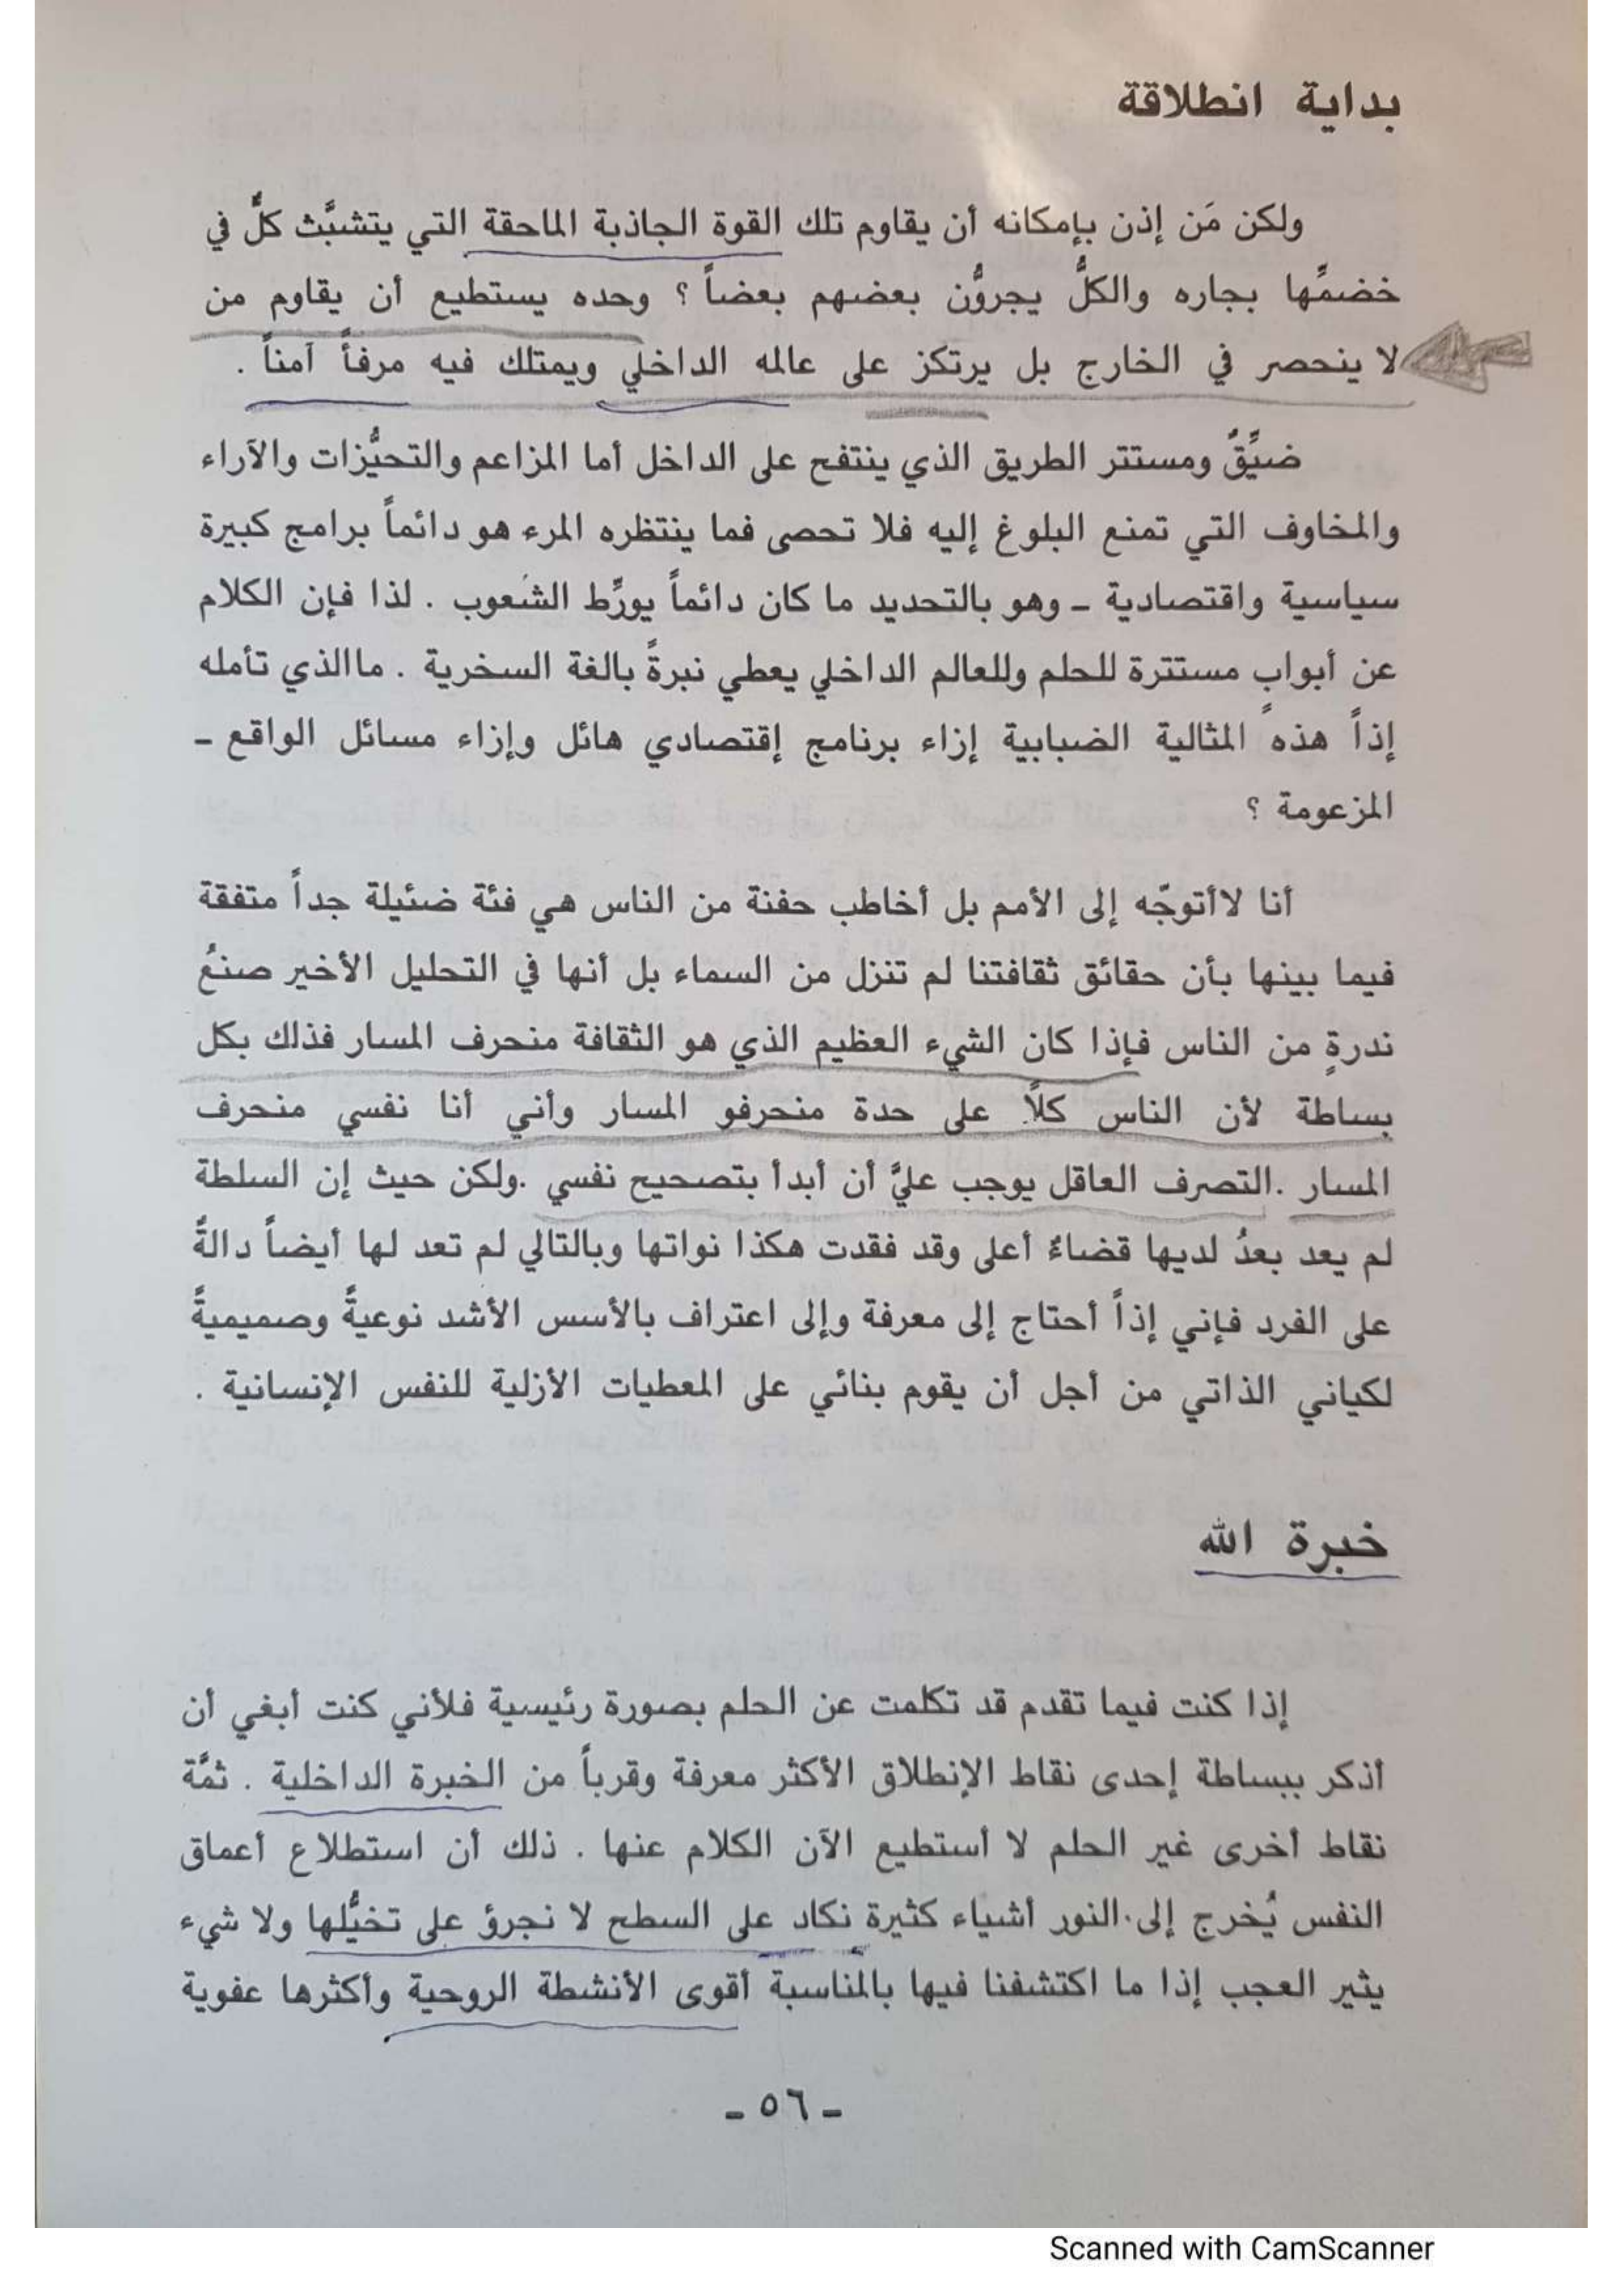 بداية انطلاقة
ولكن مَن إذن بإمكانه أن يقاوم تلك القوة الجاذبة الماحقة التي يتشبَّث كلٌّ في
خضمِّها بجاره والكلُّ يجروُّن بعضهم بعضاً ؟ وحده يستطيع أن يقاوم من
لا ينحصر في الخارج بل يرتكز على عالمه الداخلي ويمتلك فيه مرفأً آمناً .
ضيِّقٌ ومستتر الطريق الذي ينتفح على الداخل أما المزاعم والتحيُّزات والآراء
والمخاوف التي تمنع البلوغ إليه فلا تحصى فما ينتظره المرء هو دائماً برامج كبيرة
سياسية واقتصادية ـ وهو بالتحديد ما كان دائماً يورِّط الشعوب . لذا فإن الكلام
عن أبوابٍ مستترة للحلم وللعالم الداخلي يعطي نبرةً بالغة السخرية . ماالذي تأمله
إذاً هذه المثالية الضبابية إزاء برنامج إقتصادي هائل وإزاء مسائل الواقع ـ
المزعومة ؟
أنا لاأتوجّه إلى الأمم بل أخاطب حفنة من الناس هي فئة ضئيلة جداً متفقة
فيما بينها بأن حقائق ثقافتنا لم تنزل من السماء بل أنها في التحليل الأخير صنعُ
ندرةٍ من الناس فإذا كان الشيء العظيم الذي هو الثقافة منحرف المسار فذلك بكل
بساطة لأن الناس كلاً على حدة منحرفو المسار وأني أنا نفسي منحرف
المسار .التصرف العاقل يوجب عليَّ أن أبدأ بتصحيح نفسي .ولكن حيث إن السلطة
لم يعد بعدُ لديها قضاءٌ أعلى وقد فقدت هكذا نواتها وبالتالي لم تعد لها أيضاً دالةً
على الفرد فإني إذاً أحتاج إلى معرفة وإلى اعتراف بالأسس الأشد نوعيةً وصميميةً
لكياني الذاتي من أجل أن يقوم بنائي على المعطيات الأزلية للنفس الإنسانية .
خبرة الله
إذا كنت فيما تقدم قد تكلمت عن الحلم بصورة رئيسية فلأني كنت أبغي أن
أذكر ببساطة إحدى نقاط الإنطلاق الأكثر معرفة وقرباً من الخبرة الداخلية . ثمَّة
نقاط أخرى غير الحلم لا أستطيع الآن الكلام عنها . ذلك أن استطلاع أعماق
النفس يُخرج إلى النور أشياء كثيرة نكاد على السطح لا نجرؤ على تخيُّلها ولا شيء
يثير العجب إذا ما اكتشفنا فيها بالمناسبة أقوى الأنشطة الروحية وأكثرها عفوية
ـ ٥٦ ـ
Scanned with CamScanner